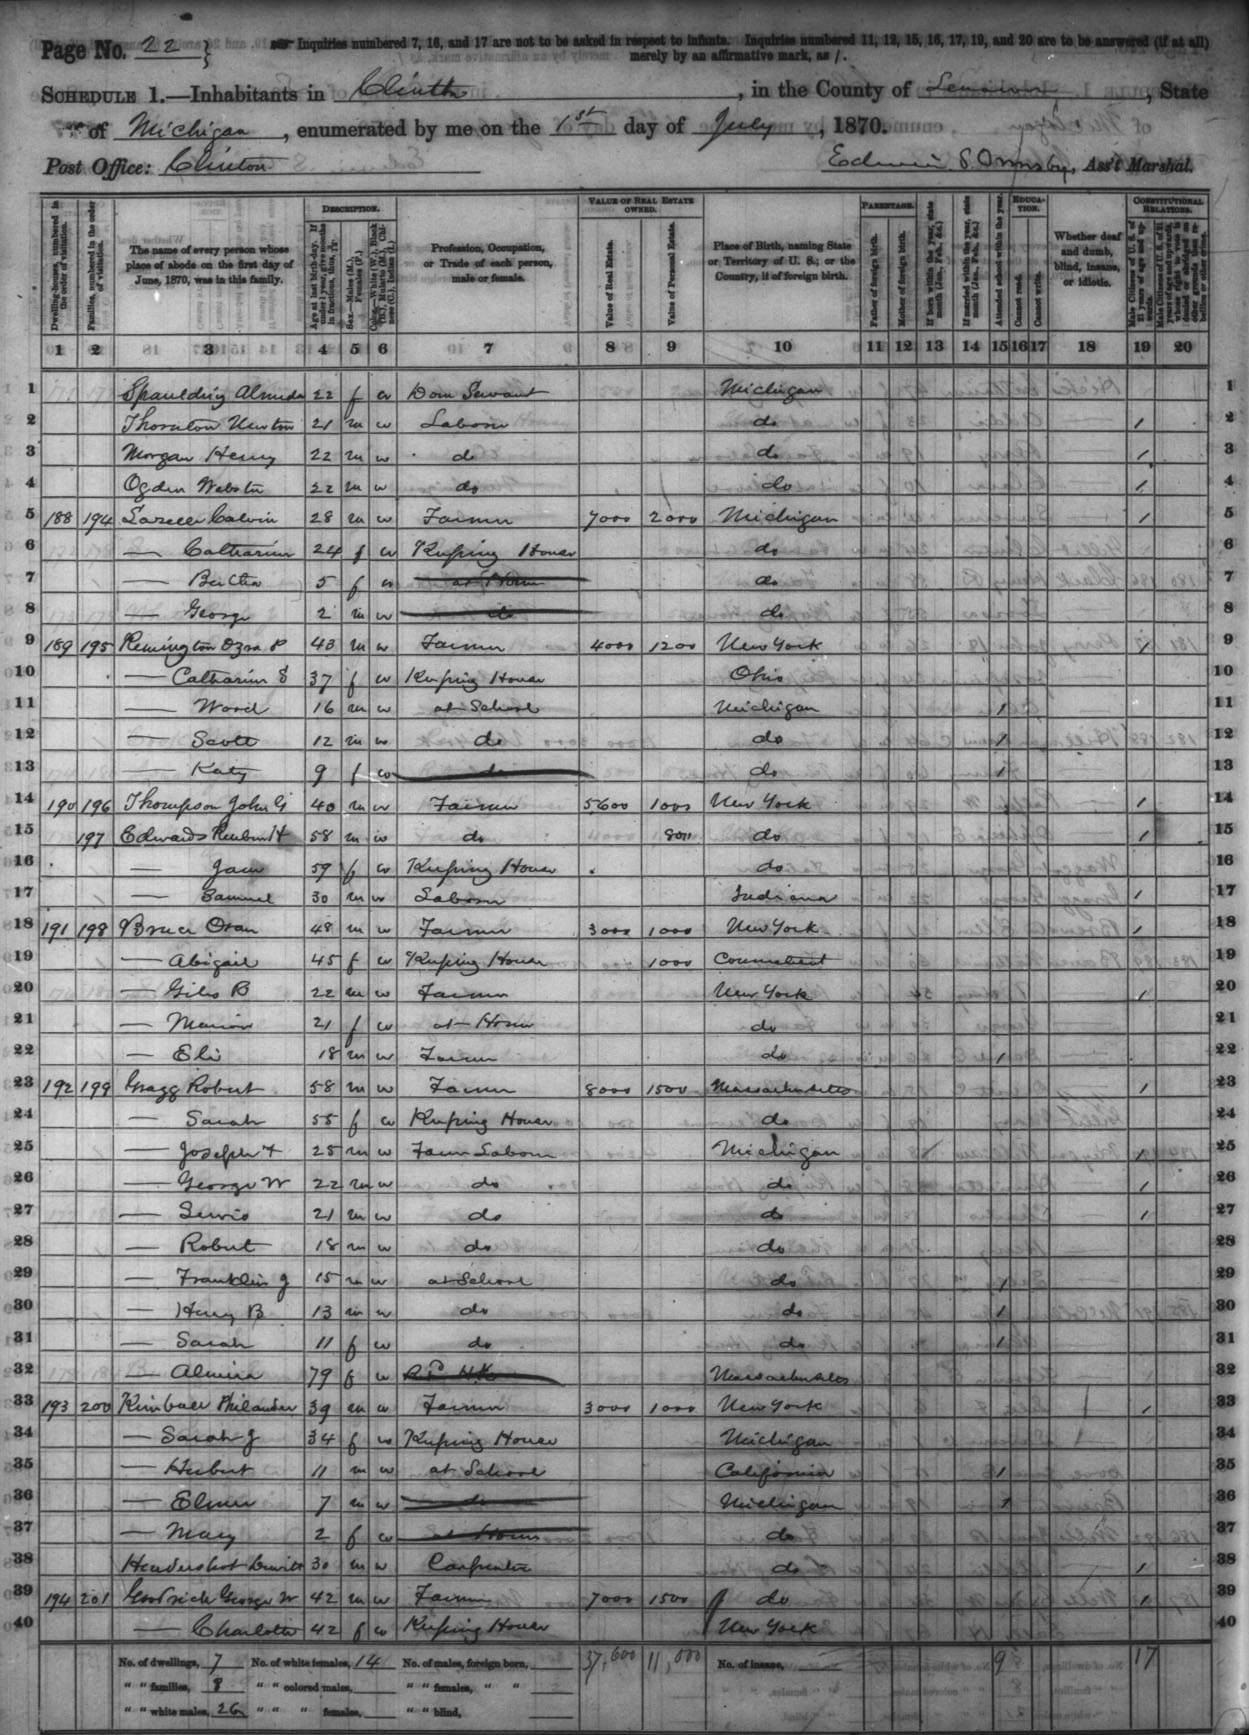 Page No. 22
Inquiries numbered 7, 16, and 17 are not to be asked in respect to infants. Inquiries numbered 11, 12, 15, 16, 17, 19, and 20 are to be answered (if at all)
merely by an affirmative mark, as /.
SCHEDULE 1.—Inhabitants in Clinton, in the County of Lenawee, State
of Michigan, enumerated by me on the 1st day of July, 1870.
Post Office: Clinton
Edwin S. Ormsby, Ass't Marshal.
Dwelling-houses, numbered in the order of visitation.
Families, numbered in the order of visitation.
The name of every person whose place of abode on the first day of June, 1870, was in this family.
DESCRIPTION.
Age at last birth-day. If under 1 year, give months in fractions, thus, 3/12.
Sex.—Males (M.), Females (F.)
Color.—White (W.), Black (B.), Mulatto (M.), Chinese (C.), Indian (I.)
Profession, Occupation, or Trade of each person, male or female.
VALUE OF REAL ESTATE OWNED.
Value of Real Estate.
Value of Personal Estate.
Place of Birth, naming State or Territory of U. S.; or the Country, if of foreign birth.
PARENTAGE.
Father of foreign birth.
Mother of foreign birth.
If born within the year, state month (Jan., Feb., &c.)
If married within the year, state month (Jan., Feb., &c.)
Attended school within the year.
EDUCATION.
Cannot read.
Cannot write.
Whether deaf and dumb, blind, insane, or idiotic.
CONSTITUTIONAL RELATIONS.
Male Citizens of U. S. of 21 years of age and upwards.
Male Citizens of U. S. of 21 years of age and upwards, whose right to vote is denied or abridged on other grounds than rebellion or other crime.
1 2 3 4 5 6 7 8 9 10 11 12 13 14 15 16 17 18 19 20
1 Spaulding Almeda 22 f w Dom Servant Michigan 1
2 Thornton Newton 21 m w Laborer do / 2
3 Morgan Henry 22 m w do do / 3
4 Ogden Webster 22 m w do do / 4
5 188 194 Lazelle Calvin 28 m w Farmer 7000 2000 Michigan / 5
6 — Catharine 24 f w Keeping House do 6
7 — Bertha 5 f w at Home do 7
8 — George 2 m w do do 8
9 189 195 Remington Ozra P 43 m w Farmer 4000 1200 New York / 9
10 — Catharine S 37 f w Keeping House Ohio 10
11 — Wood 16 m w at School Michigan / 11
12 — Scott 12 m w do do / 12
13 — Katy 9 f w do do / 13
14 190 196 Thompson John G 40 m w Farmer 5600 1000 New York / 14
15 197 Edwards Reuben H 58 m w do 800 do / 15
16 — Jane 59 f w Keeping House do 16
17 — Samuel 30 m w Laborer Indiana / 17
18 191 198 Bruce Oran 48 m w Farmer 3000 1000 New York / 18
19 — Abigail 45 f w Keeping House 1000 Connecticut 19
20 — Giles B 22 m w Farmer New York / 20
21 — Marion 21 f w at Home do 21
22 — Eli 18 m w Farmer do / 22
23 192 199 Gragg Robert 58 m w Farmer 8000 1500 Massachusetts / 23
24 — Sarah 55 f w Keeping House do 24
25 — Joseph F 25 m w Farm Laborer Michigan / 25
26 — George W 22 m w do do / 26
27 — Lewis 21 m w do do / 27
28 — Robert 18 m w do do 28
29 — Franklin J 15 m w at School do / 29
30 — Henry B 13 m w do do / 30
31 — Sarah 11 f w do do / 31
32 — Almira 79 f w Massachusetts 32
33 193 200 Kimball Philander 39 m w Farmer 3000 1000 New York / 33
34 — Sarah J 34 f w Keeping House Michigan 34
35 — Hubert 11 m w at School California / 35
36 — Elmer 7 m w do Michigan / 36
37 — Mary 2 f w at Home do 37
38 Hendershot 30 m w Carpenter do / 38
39 194 201 Goodrich George W 42 m w Farmer 7000 1500 do / 39
40 — Charlotte 42 f w Keeping House New York 40
No. of dwellings, 7 No. of white females, 14 No. of males, foreign born, 37,600 11,000 No. of insane, 9 17
" " families, 8 " " colored males, " " females, " "
" " white males, 26 " " " females, " " blind,